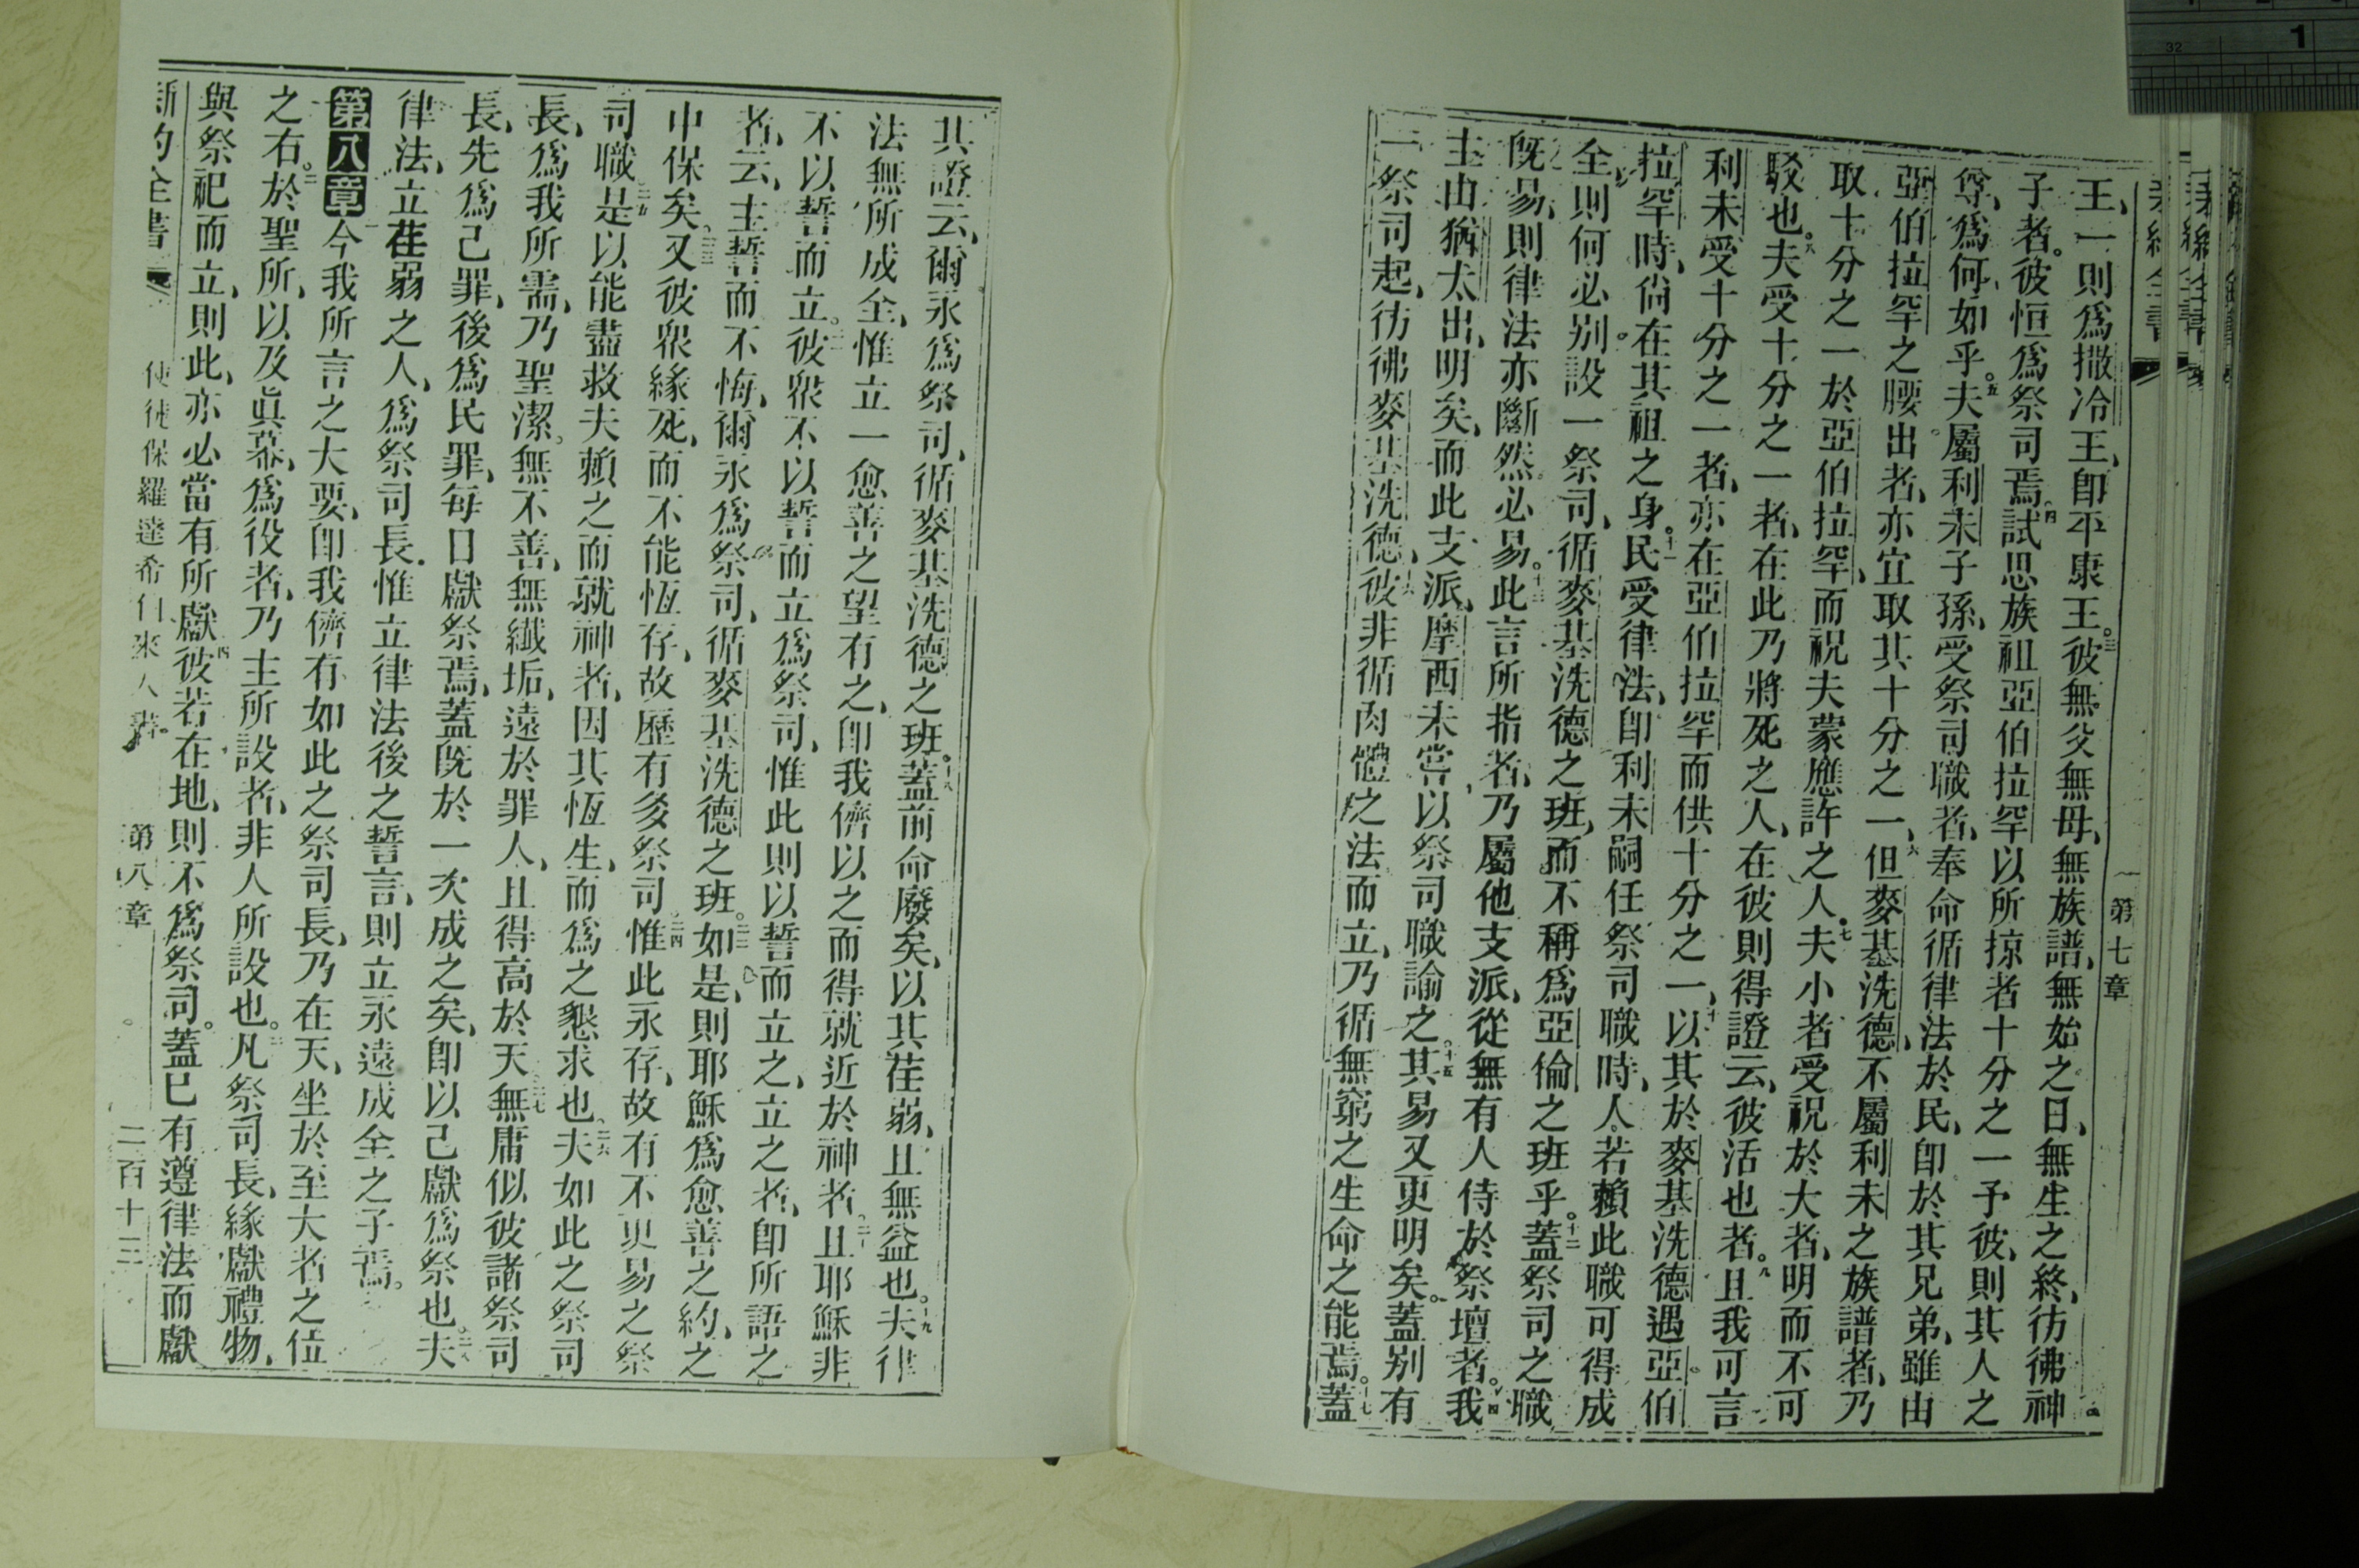 第七章
王、一則爲撒冷王、卽平康王。三彼無父無母、無族譜、無始之日、無生之終、彷彿神
子者。彼恒爲祭司焉。四試思族祖亞伯拉罕以所掠者十分之一予彼、則其人之
尊、爲何如乎。五夫屬利未子孫、受祭司職者、奉命循律法於民、卽於其兄弟、雖由
亞伯拉罕之腰出者、亦宜取其十分之一、六但麥基洗德、不屬利未之族譜者、乃
取十分之一於亞伯拉罕、而祝夫蒙應許之人。七夫小者受祝於大者、明而不可
駁也。八夫受十分之一者、在此乃將死之人、在彼則得證云、彼活也者。九且我可言
利未受十分之一者、亦在亞伯拉罕而供十分之一、十以其於麥基洗德遇亞伯
拉罕時、尙在其祖之身。十一民受律法、卽利未嗣任祭司職時、人若賴此職可得成
全、則何必別設一祭司、循麥基洗德之班、而不稱爲亞倫之班乎。十二蓋祭司之職
旣易、則律法亦斷然必易。十三此言所指者、乃屬他支派、從無有人侍於祭壇者。十四我
主由猶太出、明矣、而此支派、摩西未嘗以祭司職諭之。十五其易又更明矣。蓋別有
一祭司起、彷彿麥基洗德、十六彼非循肉體之法而立、乃循無窮之生命之能焉。十七蓋
其證云、爾永爲祭司、循麥基洗德之班。十八蓋前命廢矣、以其荏弱、且無益也。十九夫律
法無所成全、惟立一愈善之望有之、卽我儕以之而得就近於神者。二十且耶穌非
不以誓而立。二一彼衆不以誓而立爲祭司、惟此則以誓而立之、立之者、卽所語之
者、云、主誓而不悔、爾永爲祭司、循麥基洗德之班。二二如是、則耶穌爲愈善之約、之
中保矣。二三又彼衆緣死、而不能恆存、故歷有多祭司、二四惟此永存、故有不更易之祭
司職。二五是以能盡救夫賴之而就神者、因其恆生、而爲之懇求也。二六夫如此之祭司
長、爲我所需、乃聖潔。無不善、無纖垢、遠於罪人、且得高於天。二七無庸似彼諸祭司
長、先爲己罪、後爲民罪、每日獻祭焉、蓋旣於一次成之矣、卽以己獻爲祭也。二八夫
律法、立荏弱之人、爲祭司長。惟立律法後之誓言、則立永遠成全之子焉。
第八章一今我所言之大要、卽我儕有如此之祭司長、乃在天、坐於至大者之位
之右。二於聖所、以及眞幕、爲役者、乃主所設者、非人所設也。三凡祭司長、緣獻禮物、
與祭祀而立、則此、亦必當有所獻。四彼若在地、則不爲祭司。蓋已有遵律法而獻
新約全書 使徒保羅達希伯來人書 第八章 二百十三